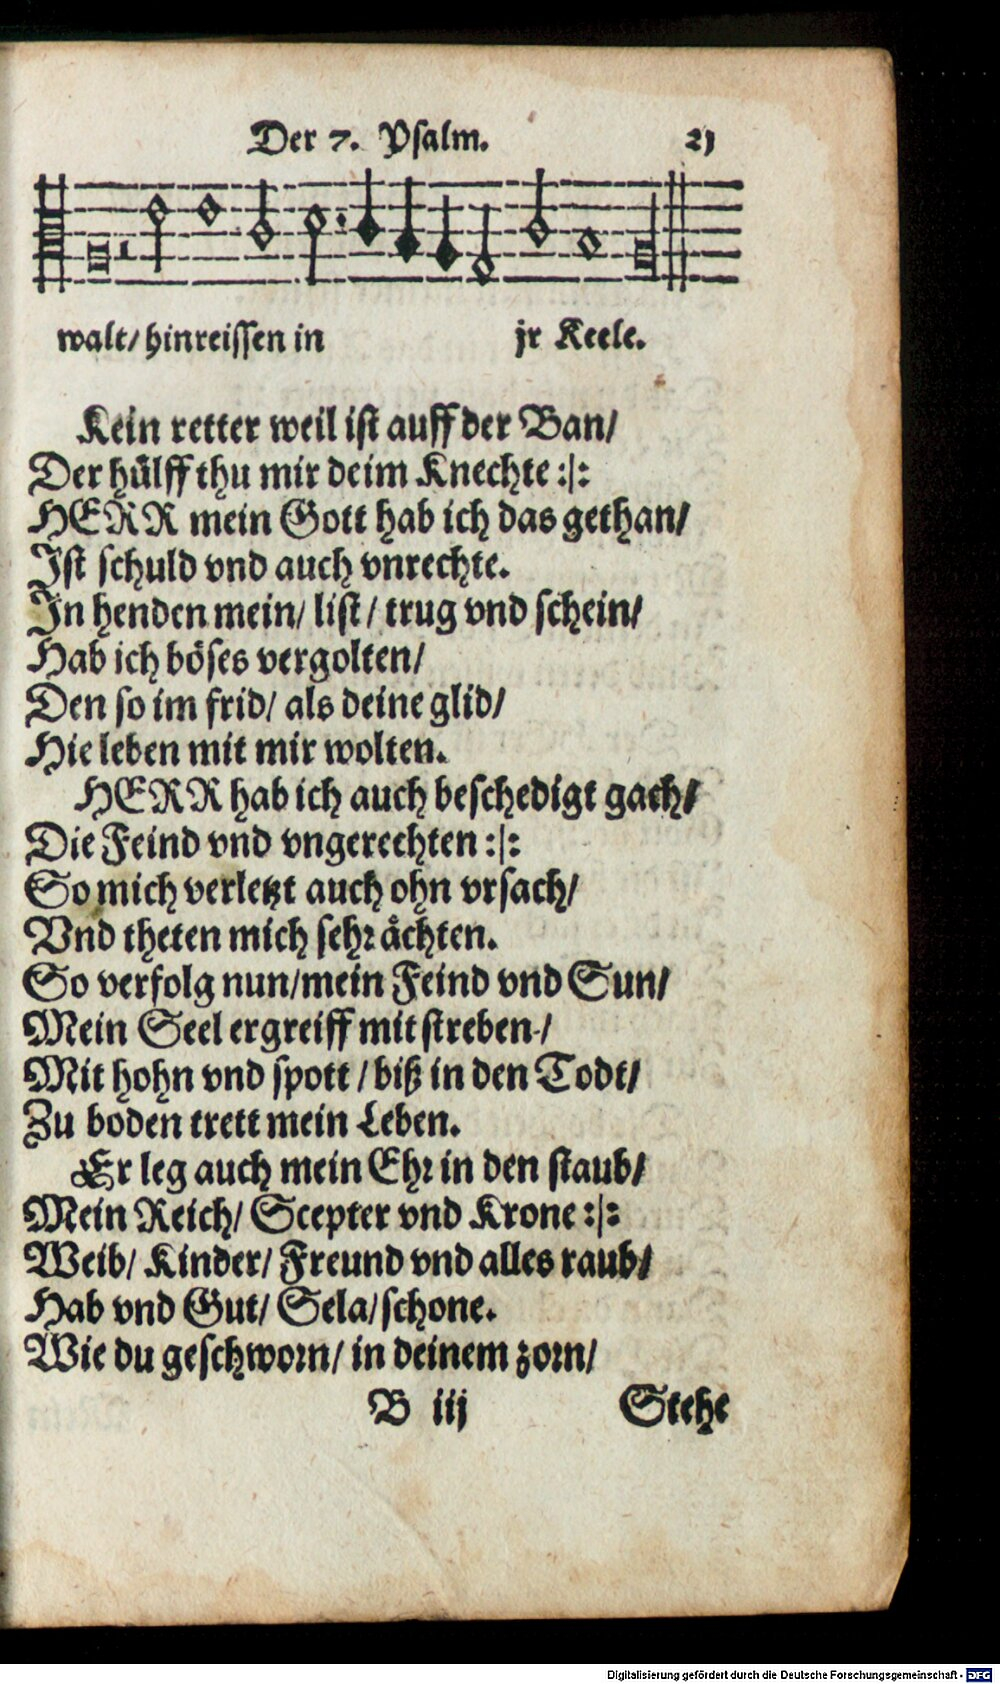 Der 7. Psalm. 21
walt/ hinreissen in jr Keele.
Kein retter weil ist auff der Ban/
Der hülff thu mir deim Knechte :|:
HERR mein Gott hab ich das gethan/
Ist schuld vnd auch vnrechte.
In henden mein/ list/ trug vnd schein/
Hab ich böses vergolten/
Den so im frid/ als deine glid/
Hie leben mit mir wolten.
HERR hab ich auch beschedigt gach/
Die Feind vnd vngerechten :|:
So mich verletzt auch ohn vrsach/
Vnd theten mich sehr ächten.
So verfolg nun/mein Feind vnd Sun/
Mein Seel ergreiff mit streben/
Mit hohn vnd spott/ biß in den Todt/
Zu boden trett mein Leben.
Er leg auch mein Ehr in den staub/
Mein Reich/ Scepter vnd Krone :|:
Weib/ Kinder/ Freund vnd alles raub/
Hab vnd Gut/ Sela/schone.
Wie du geschworn/ in deinem zorn/
B iij Stehe
Digitalisierung gefördert durch die Deutsche Forschungsgemeinschaft - DFG